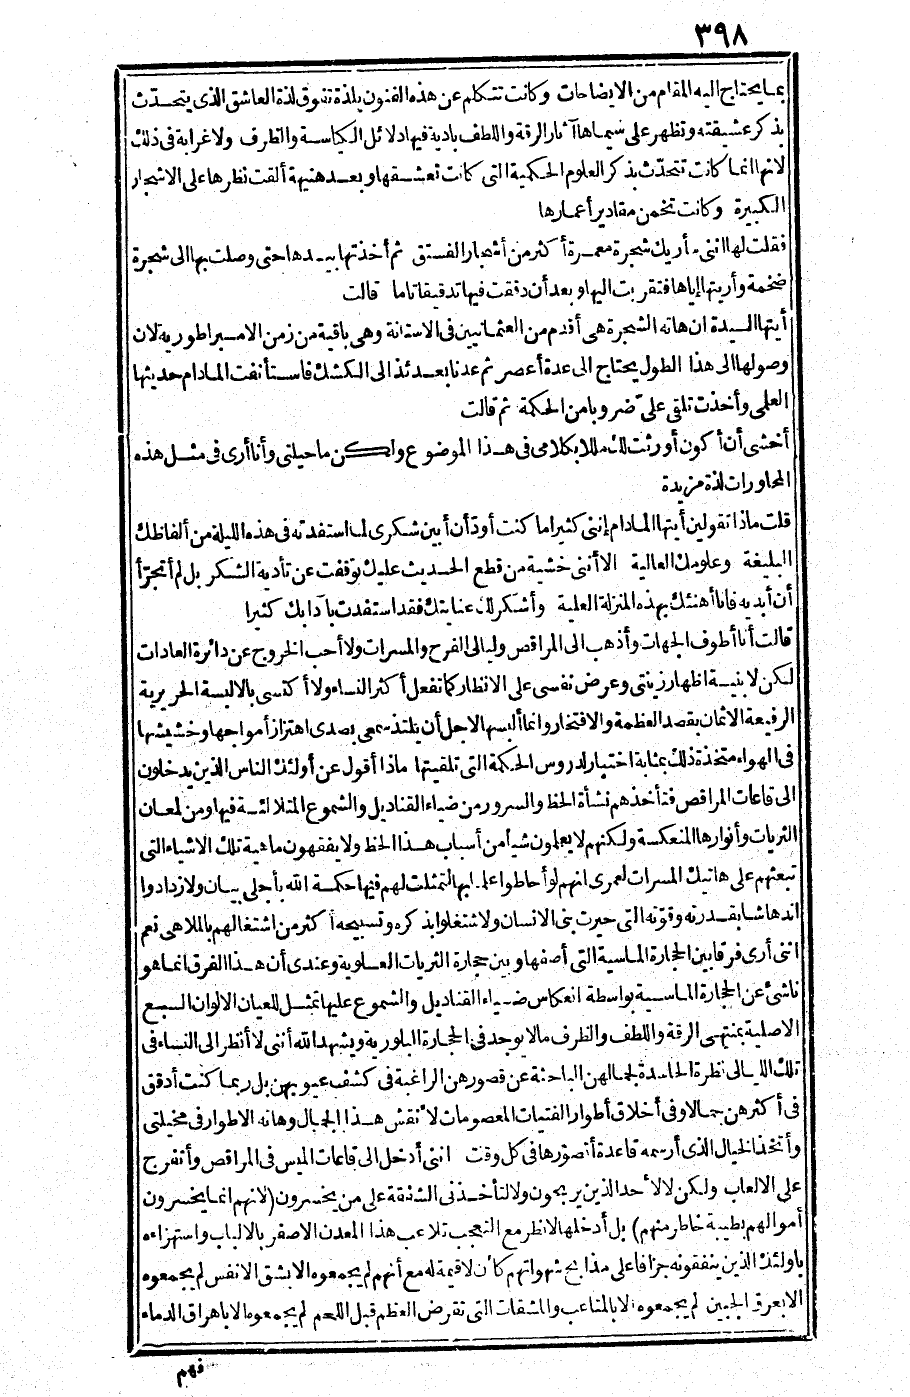 ٣٩٨
بما يحتاج اليه المقام من الايضاحات وكانت تتكلم عن هذه الفنون بلذة تفوق لذة العاشق الذي يتحدث
بذكر عشيقته وتظهر على سيماها آثار الرقة واللطف بادية فيها دلائل الكياسة والظرف ولا غرابة في ذلك
لانها انما كانت تتحدث بذكر العلوم الحكمية التي كانت تعشقها وبعد هنيهة ألقت نظرها على الاشجار
الكبيرة وكانت تخمن مقادير أعمارها
فقلت لها انني سأريك شجرة معمرة أكثر من أشجار الفستق ثم أخذتها بيدها حتى وصلت بها الى شجرة
ضخمة وأريتها إياها فتقربت اليها وبعد أن دققت فيها تدقيقا تاما قالت
أيتها السيدة ان هاته الشجرة هي أقدم من العثمانيين في الاستانة وهي باقية من زمن الامبراطورية لان
وصولها الى هذا الطول يحتاج الى عدة أعصر ثم عدنا بعدئذ الى الكشك فاستأنفت المادام حديثها
العلمي وأخذت تلقي علىّ ضروبا من الحكمة ثم قالت
أخشى أن أكون أورثت لك مللا بكلامي في هذا الموضوع ولكن ما حيلتي وأنا أرى في مثل هذه
المحاورات لذة مزيدة
قلت ماذا تقولين أيتها المادام إنني كثيرا ما كنت أودّ أن أبين شكري لما استفدته في هذه الليلة من ألفاظك
البليغة وعلومك العالية الا أنني خشية من قطع الحديث عليك توقفت عن تأدية الشكر بل لم أتجرّأ
أن أبديه فانا أهنئك بهذه المنزلة العلية وأشكر لك عنايتك فقد استفدت بآدابك كثيرا
قالت أنا أطوف الجهات وأذهب الى المراقص وليالي الفرح والمسرات ولا أحب الخروج عن دائرة العادات
لكن لا بنية اظهار زينتي وعرض نفسي على الانظار كما تفعل أكثر النساء ولا أكتسي بالالبسة الحريرية
الرفيعة الاثمان بقصد العظمة والافتخار وانما ألبسها لاجل أن يلتذ سمعي بصدى اهتزاز أمواجها وخشيشها
في الهواء متخذة ذلك بمثابة اختبار لدروس الحكمة التي تلقيتها ماذا أقول عن أولئك الناس الذين يدخلون
الى قاعات المراقص فتأخذهم نشأة الحظ والسرور من ضياء القناديل والشموع المتلالئة فيها ومن لمعان
الثريات وأنوارها المنعكسة ولكنهم لا يعلمون شيأ من أسباب هذا الحظ ولا يفقهون ماهية تلك الاشياء التي
تبعثهم على هاتيك المسرات لعمري انهم لو أحاطوا علما بها لتمثلت لهم فيها حكمة الله بأجلى بيان ولازدادوا
اندهاشا بقدرته وقوّته التي حيرت بني الانسان ولاشتغلوا بذكره وتسبيحه أكثر من اشتغالهم بالملاهي نعم
انني أرى فرقا بين الحجارة الماسية التي أصفها وبين حجارة الثريات العلوية وعندي أن هذا الفرق انما هو
ناشئ عن الحجارة الماسية بواسطة انعكاس ضياء القناديل والشموع عليها تمثل للعيان الالوان السبع
الاصلية بمنتهى الرقة واللطف والظرف ما لا يوجد في الحجارة البلورية ويشهد الله أنني لا أنظر الى النساء في
تلك الليالي نظرة الحاسدة لجمالهن الباحثة عن قصورهن الراغبة في كشف عيوبهن بل ربما كنت أدقق
في أكثرهن جمالا وفي أخلاق أطوار الفتيات المعصومات لأنقش هذا الجمال وهاته الاطوار في مخيلتي
وأتخذ الخيال الذي أرسمه قاعدة أتصوّرها في كل وقت انني أدخل الى قاعات الميس في المراقص وأتفرج
على الالعاب ولكن لا لأحد الذين يربحون ولا لتأخذني الشفقة على من يخسرون (لانهم انما يخسرون
أموالهم بطيبة خاطر منهم) بل أدخلها لانظر مع التعجب تلاعب هذا المعدن الاصفر بالالباب واستهزاءه
باولئك الذين ينفقونه جزافا على مذابح شهواتهم كأن لا قيمة له مع أنهم لم يجمعوه الا بشق الانفس لم يجمعوه
الا بعرق الجبين لم يجمعوه الا بالمتاعب والمشقات التي تقرض العظم قبل اللحم لم يجمعوه الا باهراق الدماء
فهم